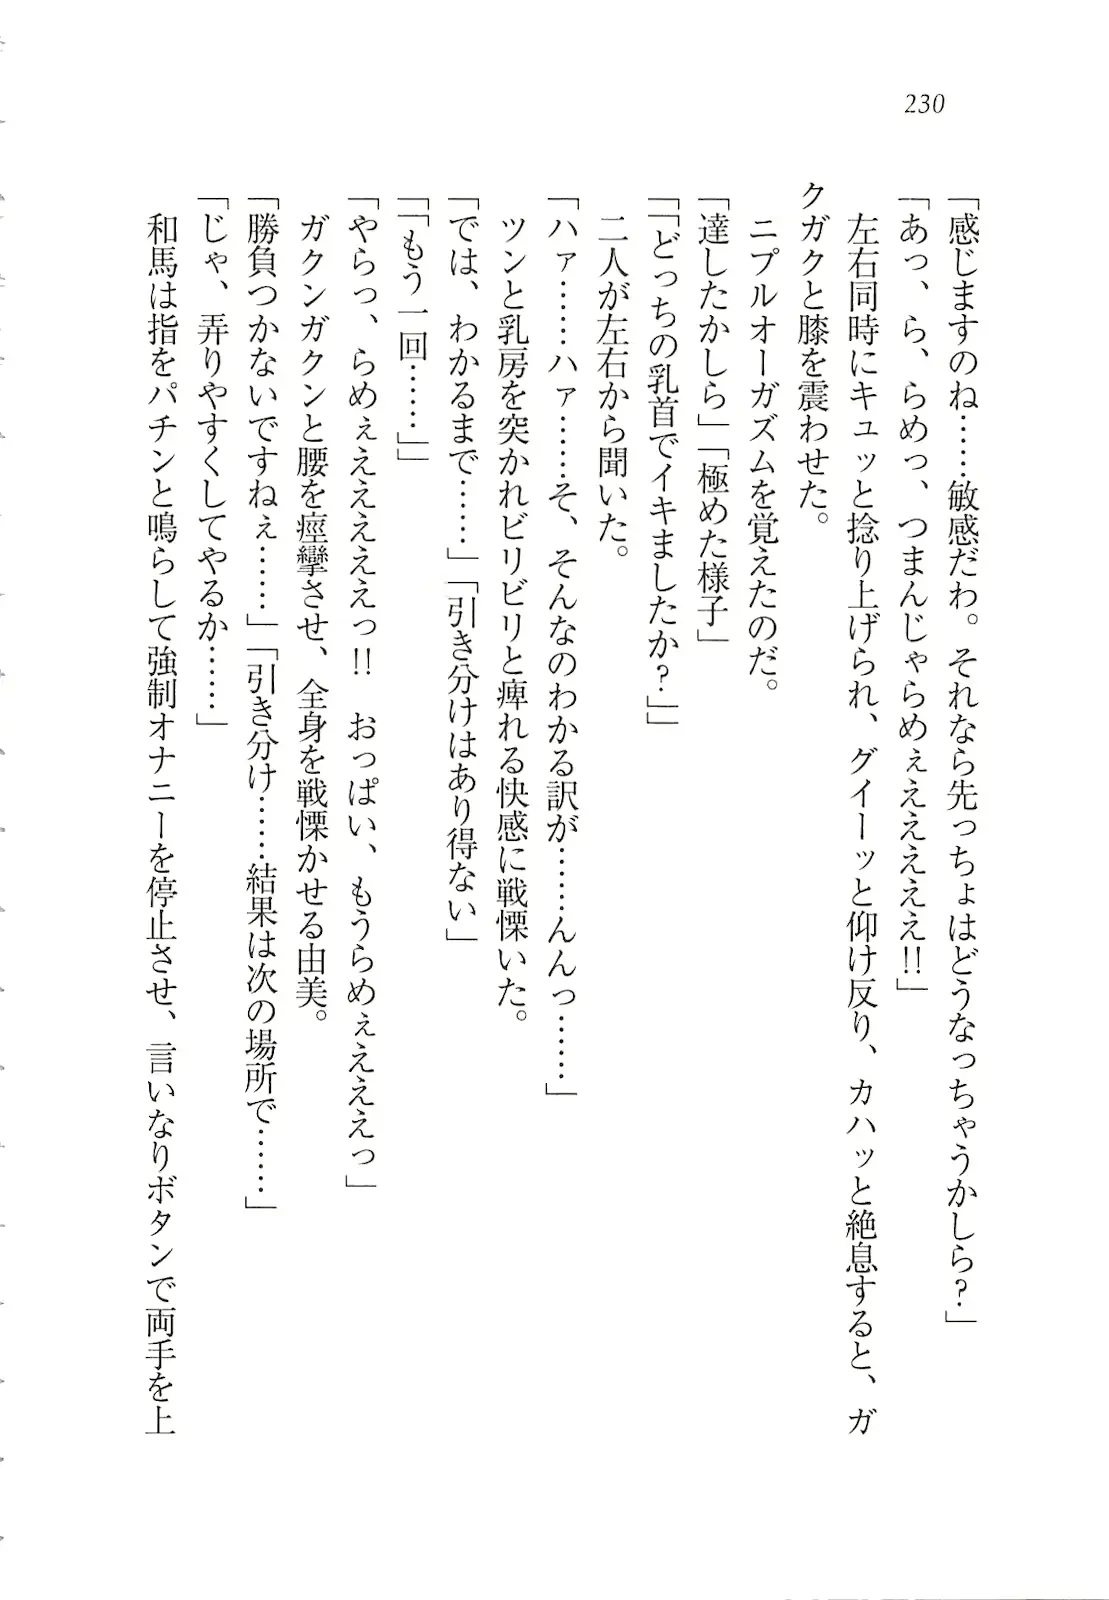 230
「感じますのね……敏感だわ。それなら先っちょはどうなっちゃうかしら?」
「あっ、ら、らめっ、つまんじゃらめぇええええ!!」
左右同時にキュッと捻り上げられ、グイーッと仰け反り、カハッと絶息すると、ガ
クガクと膝を震わせた。
ニプルオーガズムを覚えたのだ。
「達したかしら」「極めた様子」
「「どっちの乳首でイキましたか?」」
二人が左右から聞いた。
「ハァ……ハァ……そ、そんなのわかる訳が……んんっ……」
ツンと乳房を突かれビリビリと痺れる快感に戦慄いた。
「では、わかるまで……」「引き分けはあり得ない」
「「もう一回……」」
「やらっ、らめぇええええっ!! おっぱい、もうらめぇえええっ」
ガクンガクンと腰を痙攣させ、全身を戦慄かせる由美。
「勝負つかないですねぇ……」「引き分け……結果は次の場所で……」
「じゃ、弄りやすくしてやるか……」
和馬は指をパチンと鳴らして強制オナニーを停止させ、言いなりボタンで両手を上